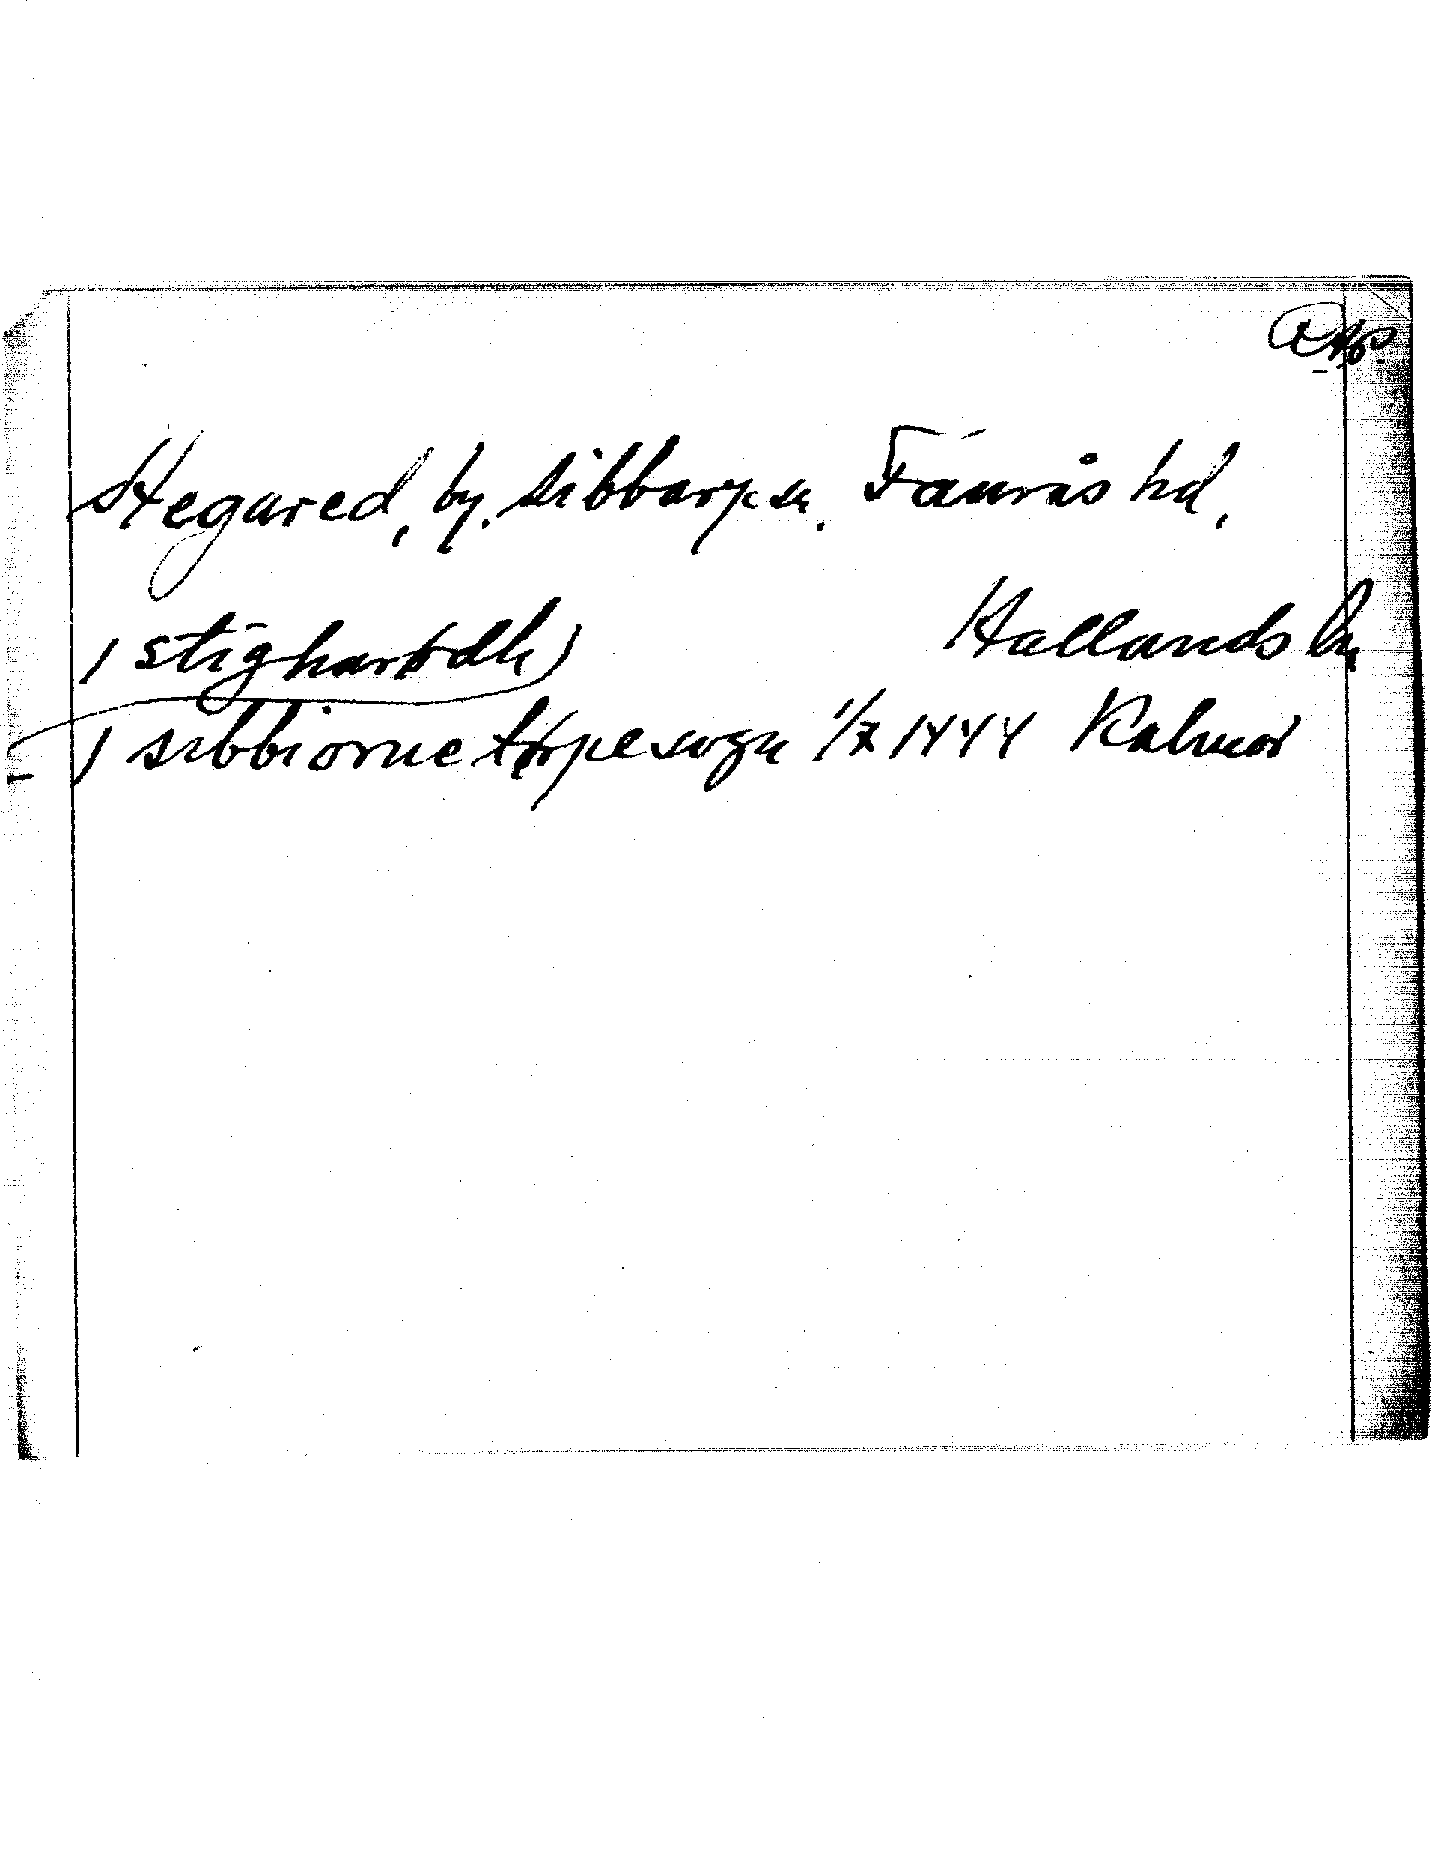 Stegared, by, Sibbarp sn, Faurås hd,
Hallands län
i stigharødh
i sibbiorne torpe sogn 1/7 1444 Kalmar